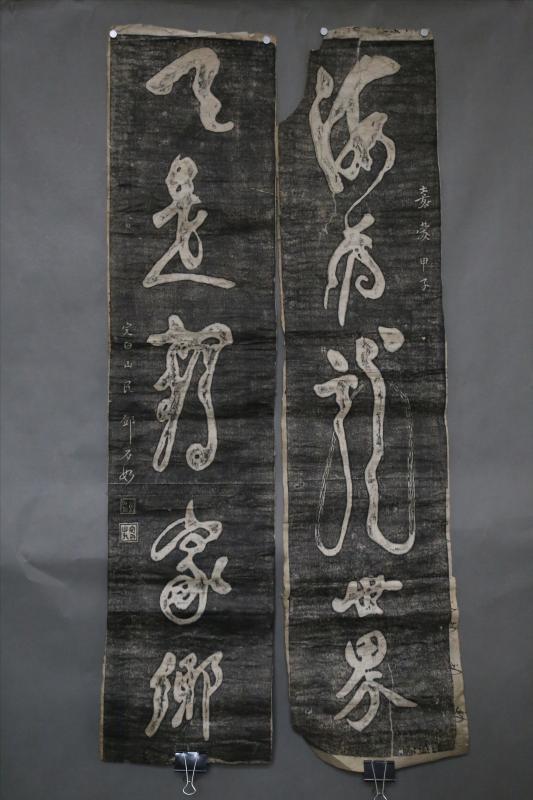 嘉慶甲子
海為龍世界
天是鶴家鄉
完白山民鄧石如